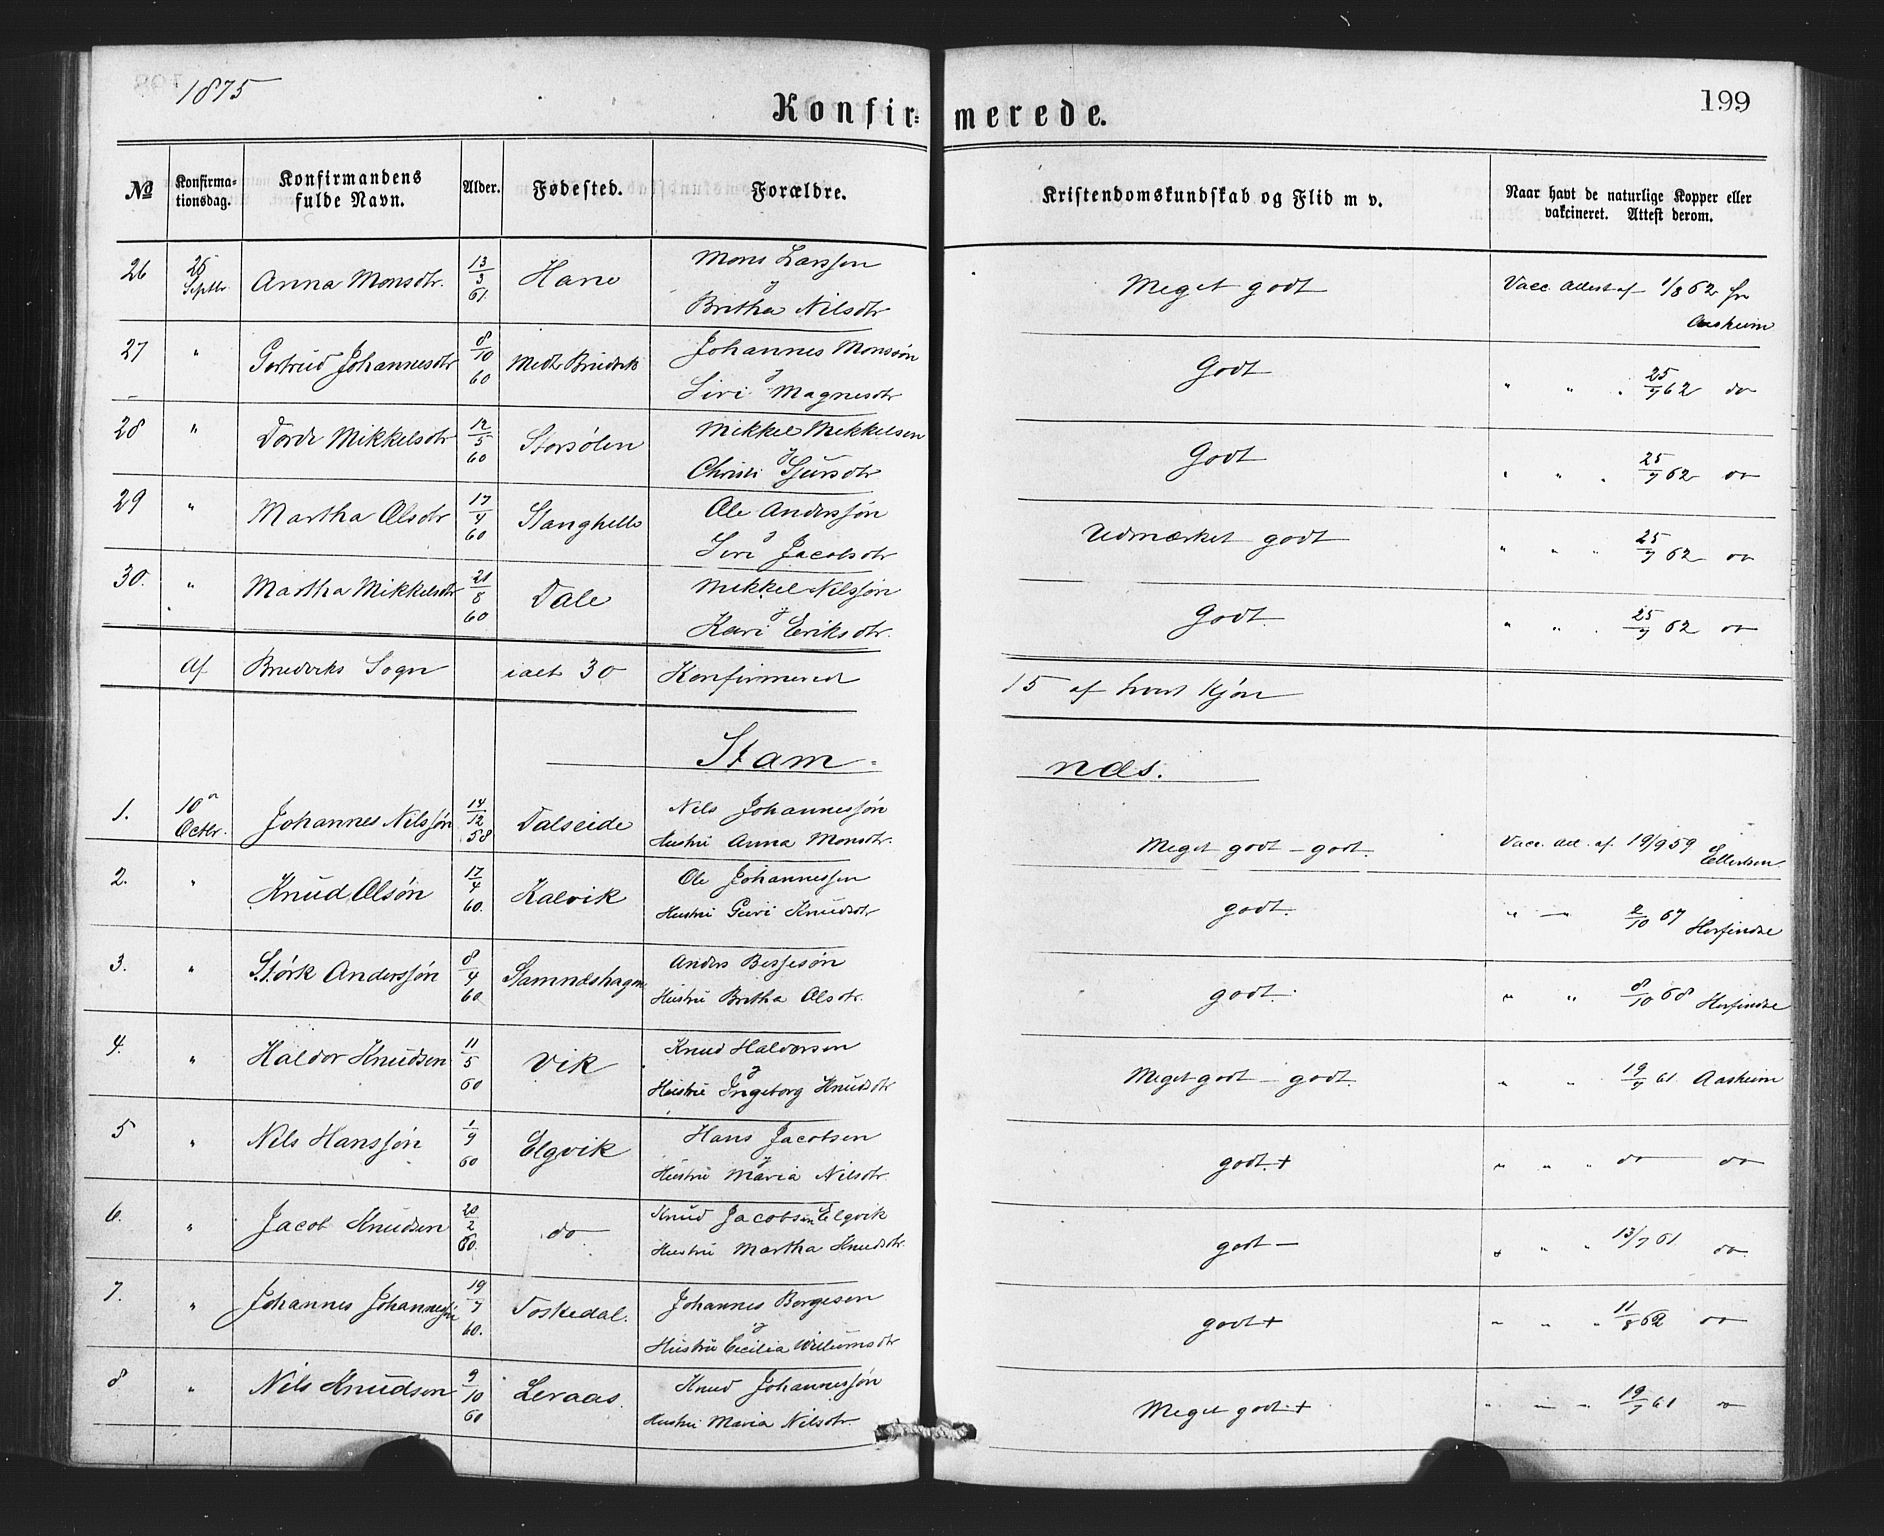 1875
Konfir= merede.
199
№ Konfirma= tionsdag. Konfirmandens fulde Navn. Alder. Fødested. Forældre. Kristendomskundskab og Flid m v. Naar havt de naturlige Kopper eller vakcineret. Attest derom.
26 26 Septbr Anna Monsdtr. 13/3 61. Mons Larssen & Britha Nilsdtr Meget godt Vacc. Attest af 1/8 62 fra Aasheim
27 " Gertrud Johannesdtr 8/10 60 Johannes Monssøn & Siri Magnesdtr Godt " " . 25/7 62 do
28 " Dorde Mikkelsdtr 12/5 60 Storsølen Mikkel Mikkelsen & Christi Sjursdtr Godt " " . 25/7 62 do
29 " Martha Olsdtr 17/4 60 Stanghelle Ole Anderssøn & Siri Jacobsdtr Udmærket godt " " " 25/7 62 do
30. " Martha Mikkelsdtr 21/8 60 Dale Mikkel Nilssøn & Kari Eriksdtr. Godt. " " . 25/7 62 do
Af Bruviks Sogn ialt 30 Konfirmered 15 af hvert Kjøn
Stam- næs.
1. 10de Octbr. Johannes Nilssøn 14/12 58 Dalseide Nils Johannessøn Hustru Anna Monsdtr. Meget godt - godt. Vacc. Att. af 19/9 59 Ellertsen
2. " Knud Olsøn 17/4 60. Kalvik Ole Johannessen Hustru Guri Knudsdtr godt. " — 2/10 67 Herfindal
3. " Størk Anderssøn 8/4 60 Stamnæshagen Anders Bergesøn Hustru Britha Olsdtr. godt. " " 8/10 68 Herfindal
4. " Haldor Knudsen 11/5 60 Vik Knud Haldorsen & Hustru Ingeborg Knudsdtr Meget godt - godt. " " 19/7 61 Aasheim
5 " Nils Hanssøn 1/9 60 Elgvik Hans Jacobsen & Hustru Maria Nilsdtr. godt. + " " " do do
6. " Jacob Knudsen 20/2 60. do Knud Jacobsen Elgvik Hustru Martha Knudsdtr. godt — " " " 13/7 61 do.
7. " Johannes Johannessøn 19/7 60. Toskedal. Johannes Børgesen & Hustru Cecilia Willumsdtr godt + " " " 11/8 62 do
8 " Nils Knudsen 9/10 60 Leraas. Knud Johannessøn Hustru Maria Nilsdtr. Meget godt. + " — " 19/7 61 do